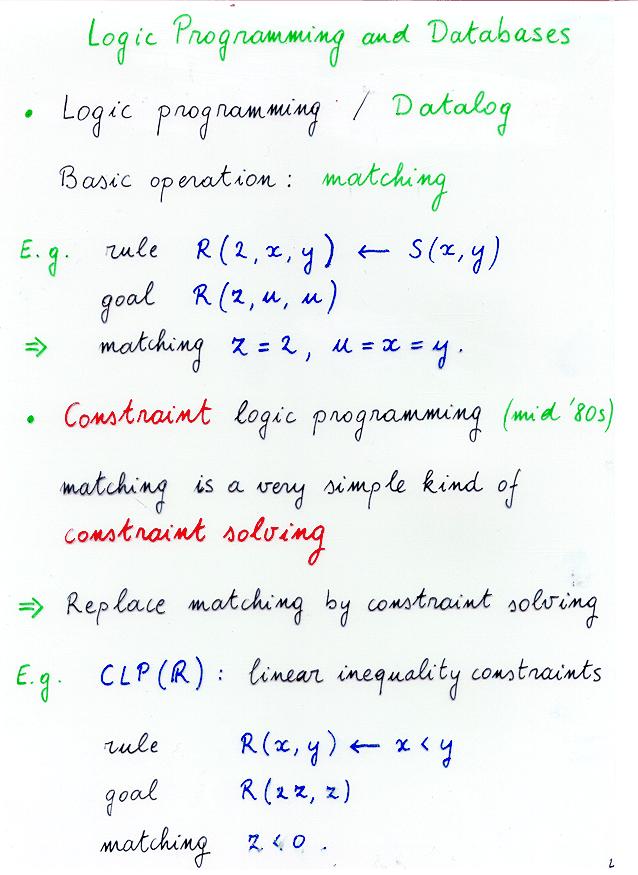 Logic Programming and Databases
• Logic programming / Datalog
Basic operation : matching
E.g. rule R(2, x, y) ← S(x, y)
goal R(z, u, u)
⇒ matching z = 2, u = x = y.
• Constraint logic programming (mid '80s)
matching is a very simple kind of
constraint solving
⇒ Replace matching by constraint solving
E.g. CLP(ℝ) : linear inequality constraints
rule R(x, y) ← x < y
goal R(2z, z)
matching z < 0 .